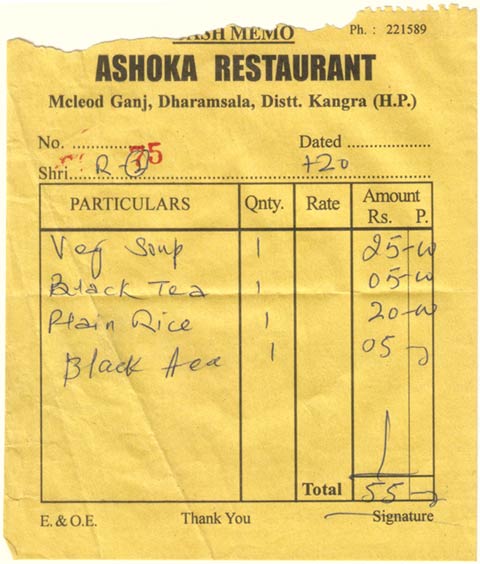 CASH MEMO Ph. : 221589
ASHOKA RESTAURANT
Mcleod Ganj, Dharamsala, Distt. Kangra (H.P.)
No. .................. Dated ..................
75
Shri..... R- ............ +20 ............
PARTICULARS Qnty. Rate Amount Rs. P.
Veg Soup 1 25-00
Black Tea 1 05-00
Plain Rice 1 20-00
Black Tea 1 05-
Total 55-
E. & O.E. Thank You Signature